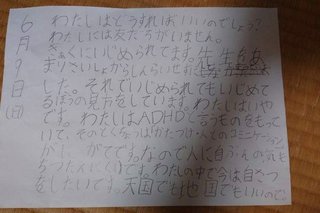 6月9日(日)
わたしはどうすればいいのでしょう?
わたしには友だちがいません。
ぎゃくにいじめられてます。先生もあ
まりさいしょからしんらいせず
した。それでいじめられてもいじめて
るほうの見方をしています。わたしはいや
です。わたしはADHDと言うものをもって
いて、そのとくちょうはかたづけ・人とのコミニケーション
がにがてです。なので人に自ぶんの気も
ちつたえにくいです。わたしの中で今は自さつ
をしたいです。天国でも地国でもいいので。